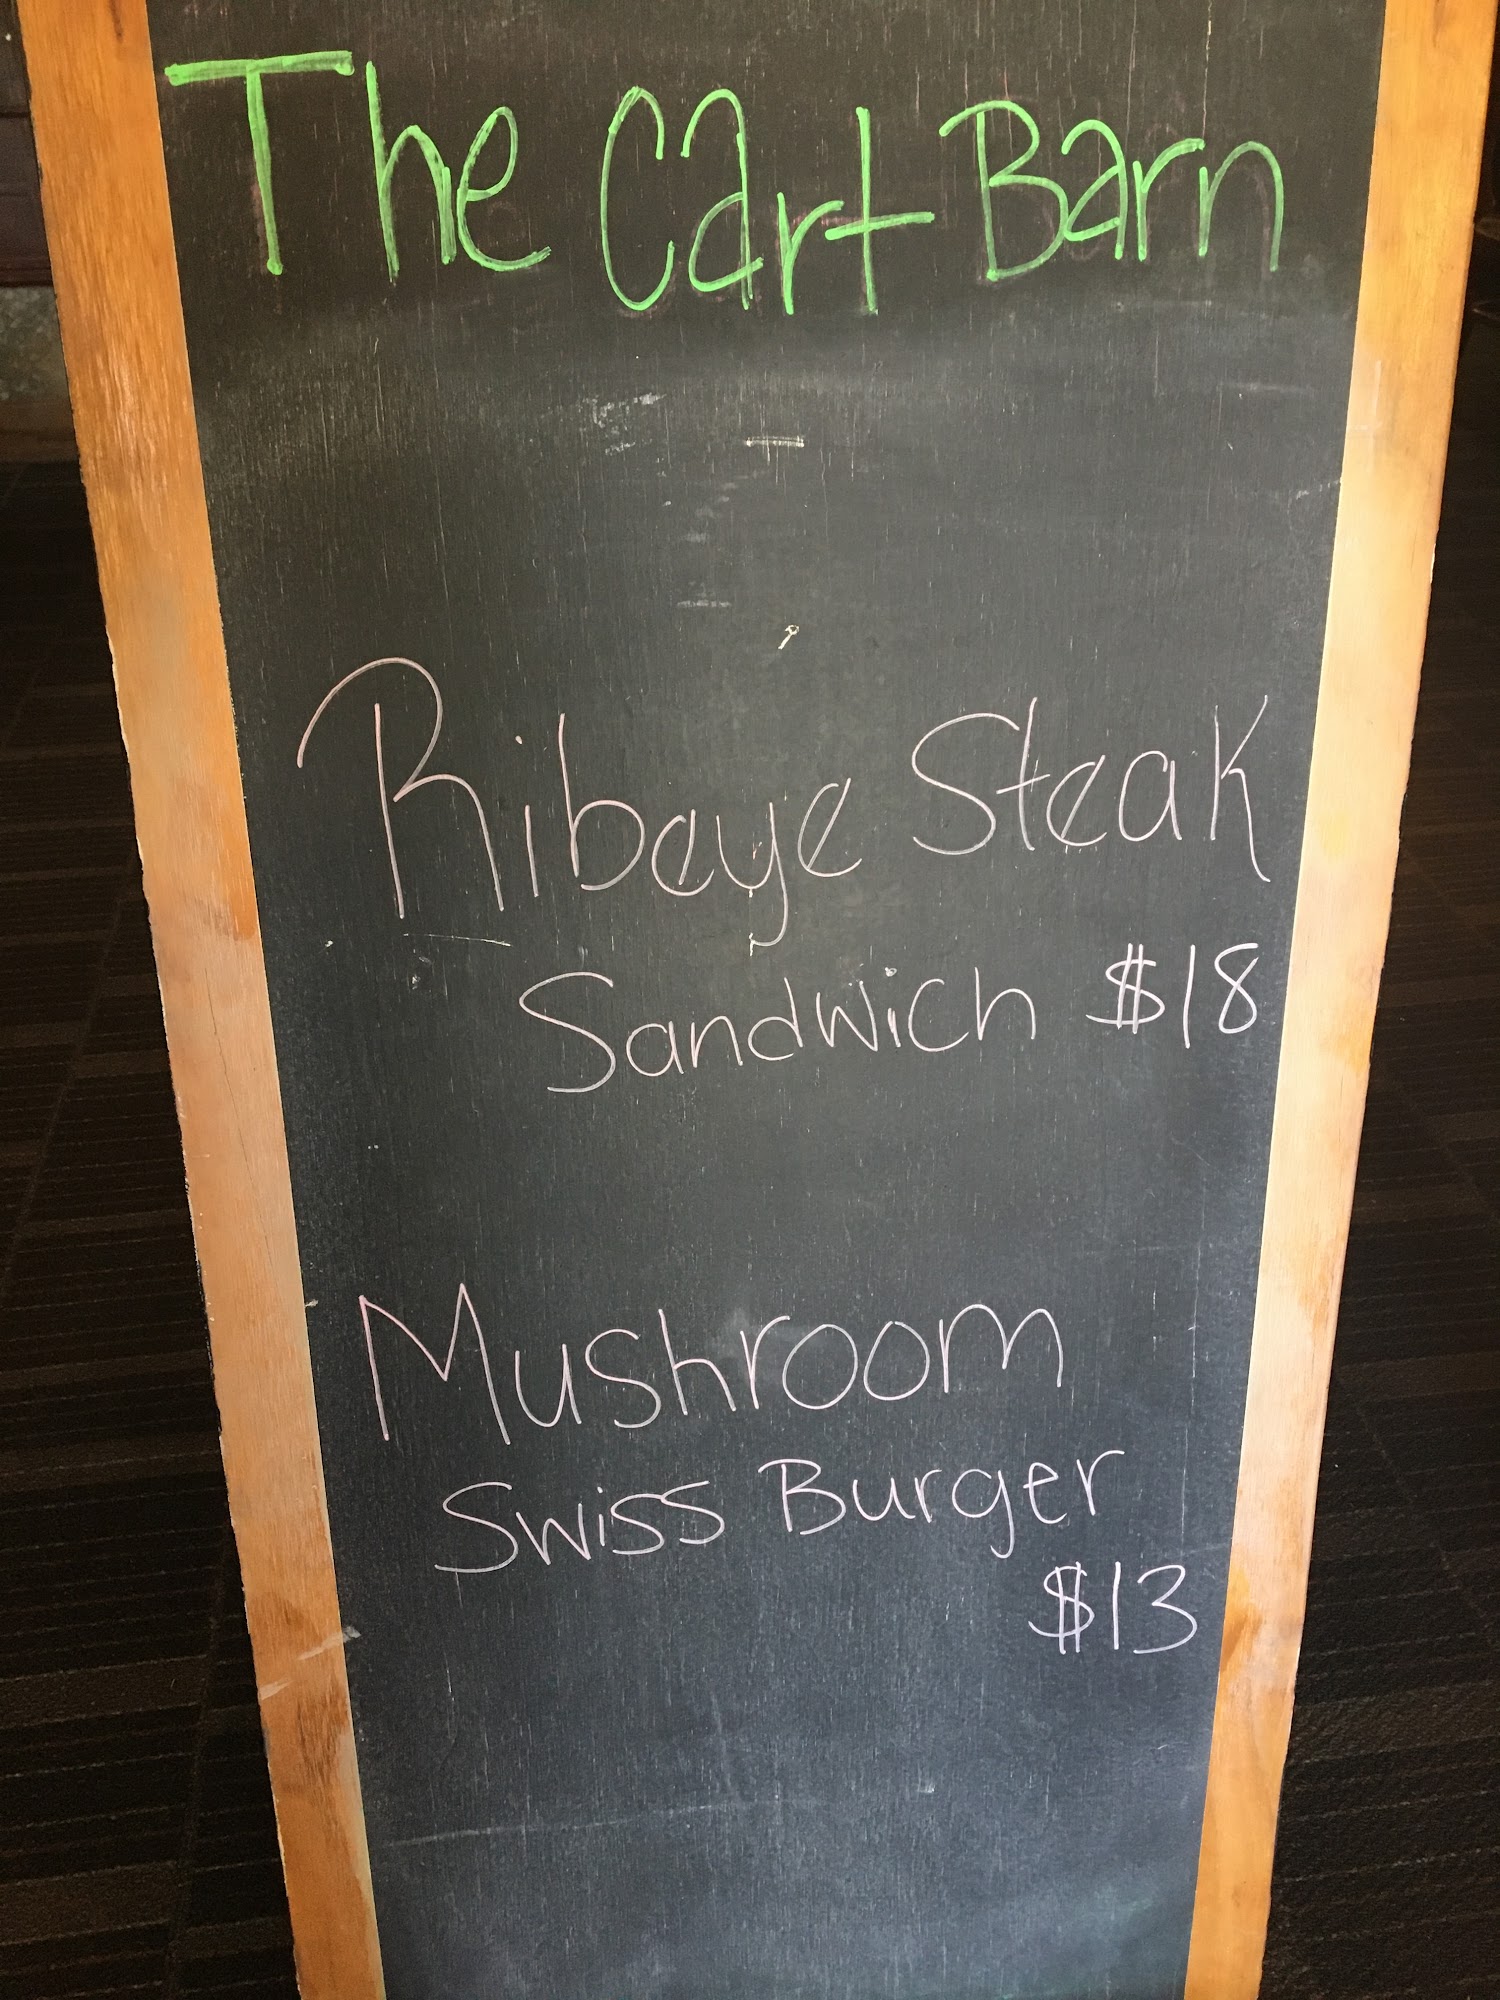 The Cart Barn
Ribeye Steak
Sandwich $18
Mushroom
Swiss Burger
$13